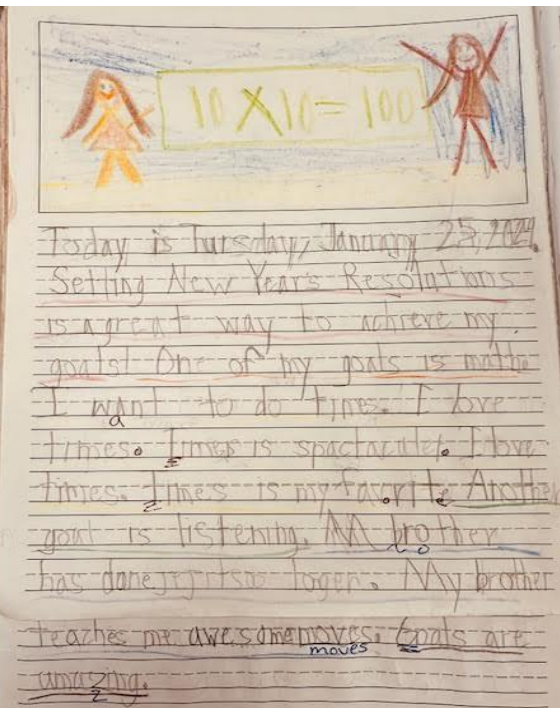 10 X 10 = 100
Today is Tursday, January 25, 2024.
Setting New Year's Resolutions
is a great way to achieve my
goals! One of my goals is mathe
I want to do times. I love
times. Times is spactaculer. I love
times. times is my favorite Another
goal is listening. M brother
has done so loger. My brother
teaches me awesome moves. Goals are
moves
amazing.